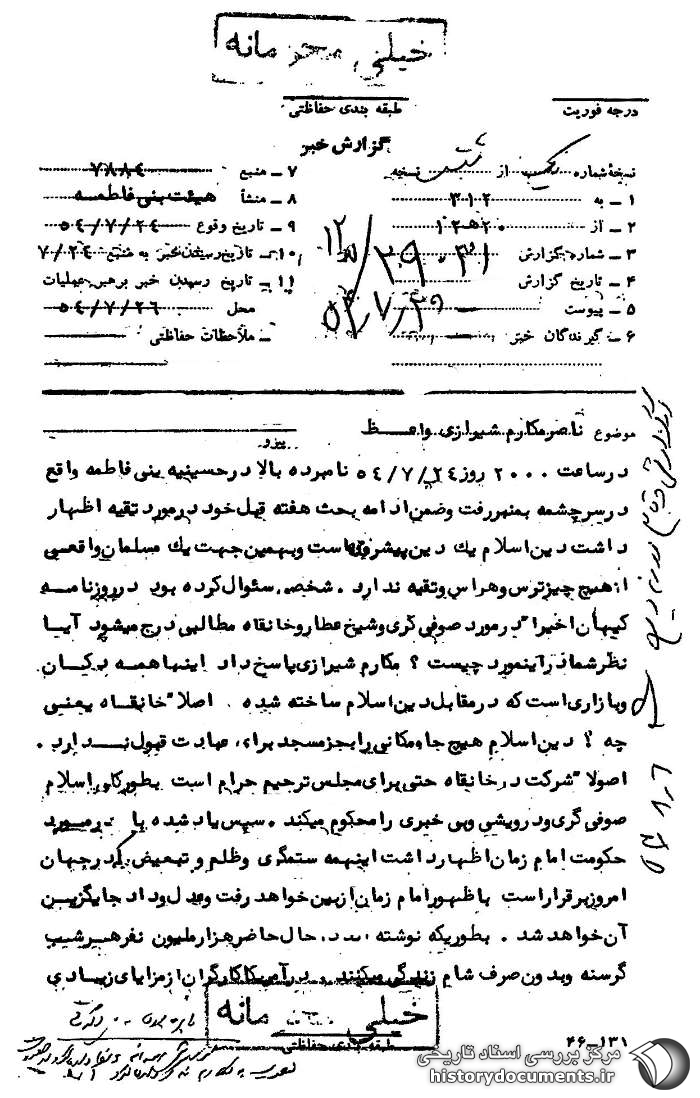 خیلی محرمانه
درجه فوریت
طبقه بندی حفاظتی
گزارش خبر
نسخهٔ شماره یکمین از شش نسخه
۷ ـ منبع ۷۸۸۴
۱ ـ به ۳۱۲
۸ ـ منشأ هیئت بنی فاطمه
۲ ـ از ۲۰ه۱۲
۹ ـ تاریخ وقوع ۵۴/۷/۲۴
۳ ـ شماره گزارش
۱۰ ـ تاریخ رسیدن خبر به منبع ۷/۲۴
۴ ـ تاریخ گزارش
۱۱ ـ تاریخ رسیدن خبر برهبر عملیات
۵ ـ پیوست
محل ۵۴/۷/۲۶
۶ ـ گیرندگان خبر
ـ ملاحظات حفاظتی
موضوع ناصر مکارم شیرازی واعظ
پیرو
درساعت ۲۰۰۰ روز ۵۴/۷/۲۴ نامبرده بالا درحسینیه بنی فاطمه واقع
درسرچشمه بمنبررفت وضمن ادامه بحث هفته قبل خود درمورد تقیه اظهار
داشت دین اسلام یك دین پیشروی است وبهمین جهت یك مسلمان واقعی
ازهیچ چیزترس وهراس وتقیه ندارد . شخصی سئوال کرده بود درروزنامه
کیهان اخیرا" درمورد صوفی گری وشیخ عطار وخانقاه مطالبی درج میشود آیا
نظر شما در اینمورد چیست ؟ مکارم شیرازی پاسخ داد اینها همه دکان
وبازاری است که درمقابل دین اسلام ساخته شده . اصلا" خانقاه یعنی
چه ؟ دین اسلام هیچ جا ومکانی را بجز مسجد برای عبادت قبول ندارد .
اصولا" شرکت درخانقاه حتی برای مجلس ترحیم حرام است بطورکلی اسلام
صوفی گری ودرویشی وبی خبری را محکوم میکند . سپس یاد شده با درمورد
حکومت امام زمان اظهارداشت اینهمه ستمگری وظلم و تبعیض که درجهان
امروز برقرار است باظهور امام زمان ازبین خواهد رفت وعدل وداد جایگزین
آن خواهد شد . بطوریکه نوشته اند درحال حاضر هزار ملیون نفر هرشب
گرسنه وبدون صرف شام زندگی میکنند . درآمریکا کارگران ازمزایای زیادی
خیلی محرمانه
طبقه بندی حفاظتی
۴۶-۱۳۱
مرکز بررسی اسناد تاریخی
historydocuments.ir